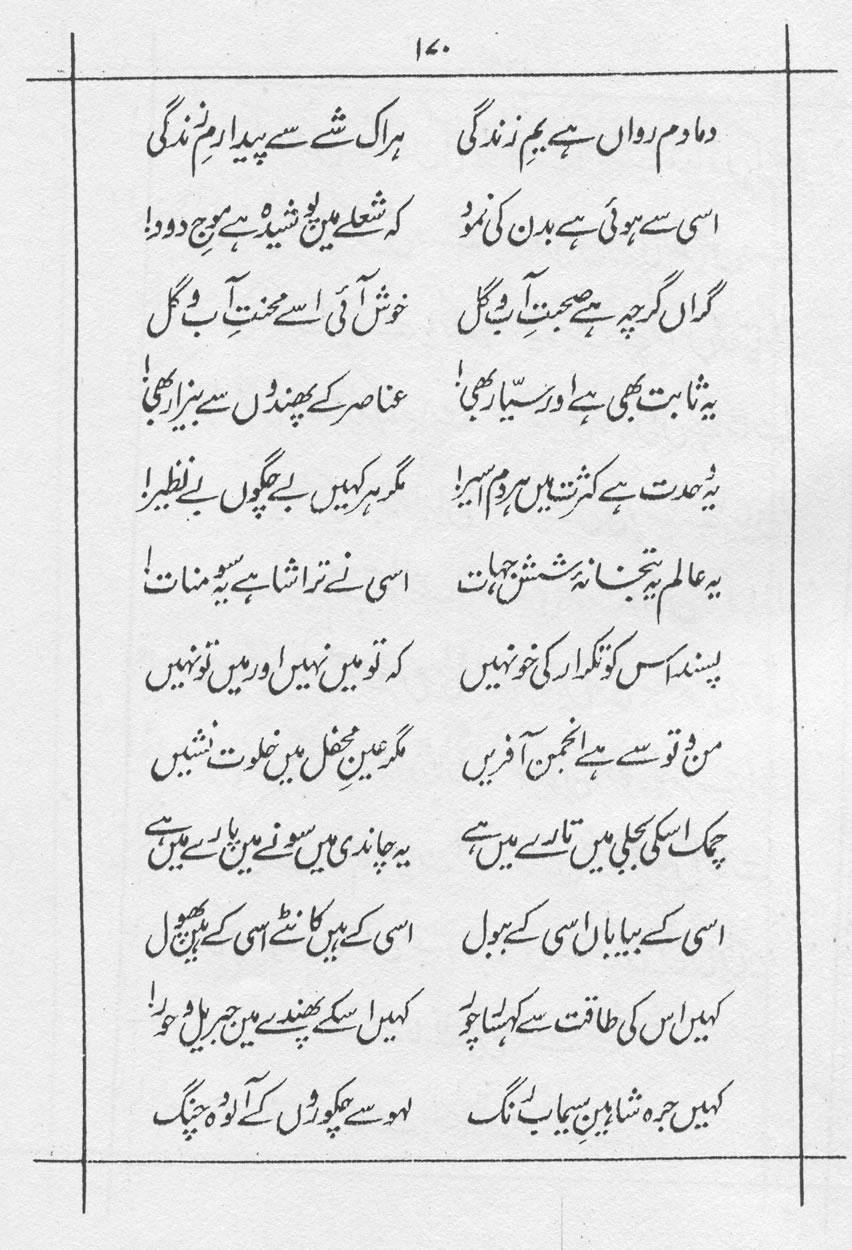 ۱۷۰
دمادم رواں ہے یمِ زندگی ہر اک شے سے پیدا رمِ زندگی
اسی سے ہوئی ہے بدن کی نمود کہ شعلے میں پوشیدہ ہے موجِ دود!
گراں گرچہ ہے صحبتِ آب و گل خوش آئی اسے محنتِ آب و گل
یہ ثابت بھی ہے اور سیّار بھی! عناصر کے پھندوں سے بیزار بھی!
یہ وحدت ہے کثرت میں ہر دم اسیر! مگر ہر کہیں بے چگوں بے نظیر!
یہ عالم یہ بتخانۂ شش جہات اسی نے تراشا ہے یہ سومنات!
پسند اس کو تکرار کی خو نہیں کہ تو میں نہیں اور میں تو نہیں
من و تو سے ہے انجمن آفریں مگر عینِ محفل میں خلوت نشیں
چمک اسکی بجلی میں تارے میں ہے یہ چاندی میں سونے میں پارے میں ہے
اسی کے بیاباں اسی کے ببول اسی کے ہیں کانٹے اسی کے ہیں پھول
کہیں اس کی طاقت سے کہسار چور کہیں اسکے پھندے میں جبریل و حور!
کہیں جرہ شاہینِ سیماب رنگ لہو سے چکوروں کے آلودہ چنگ